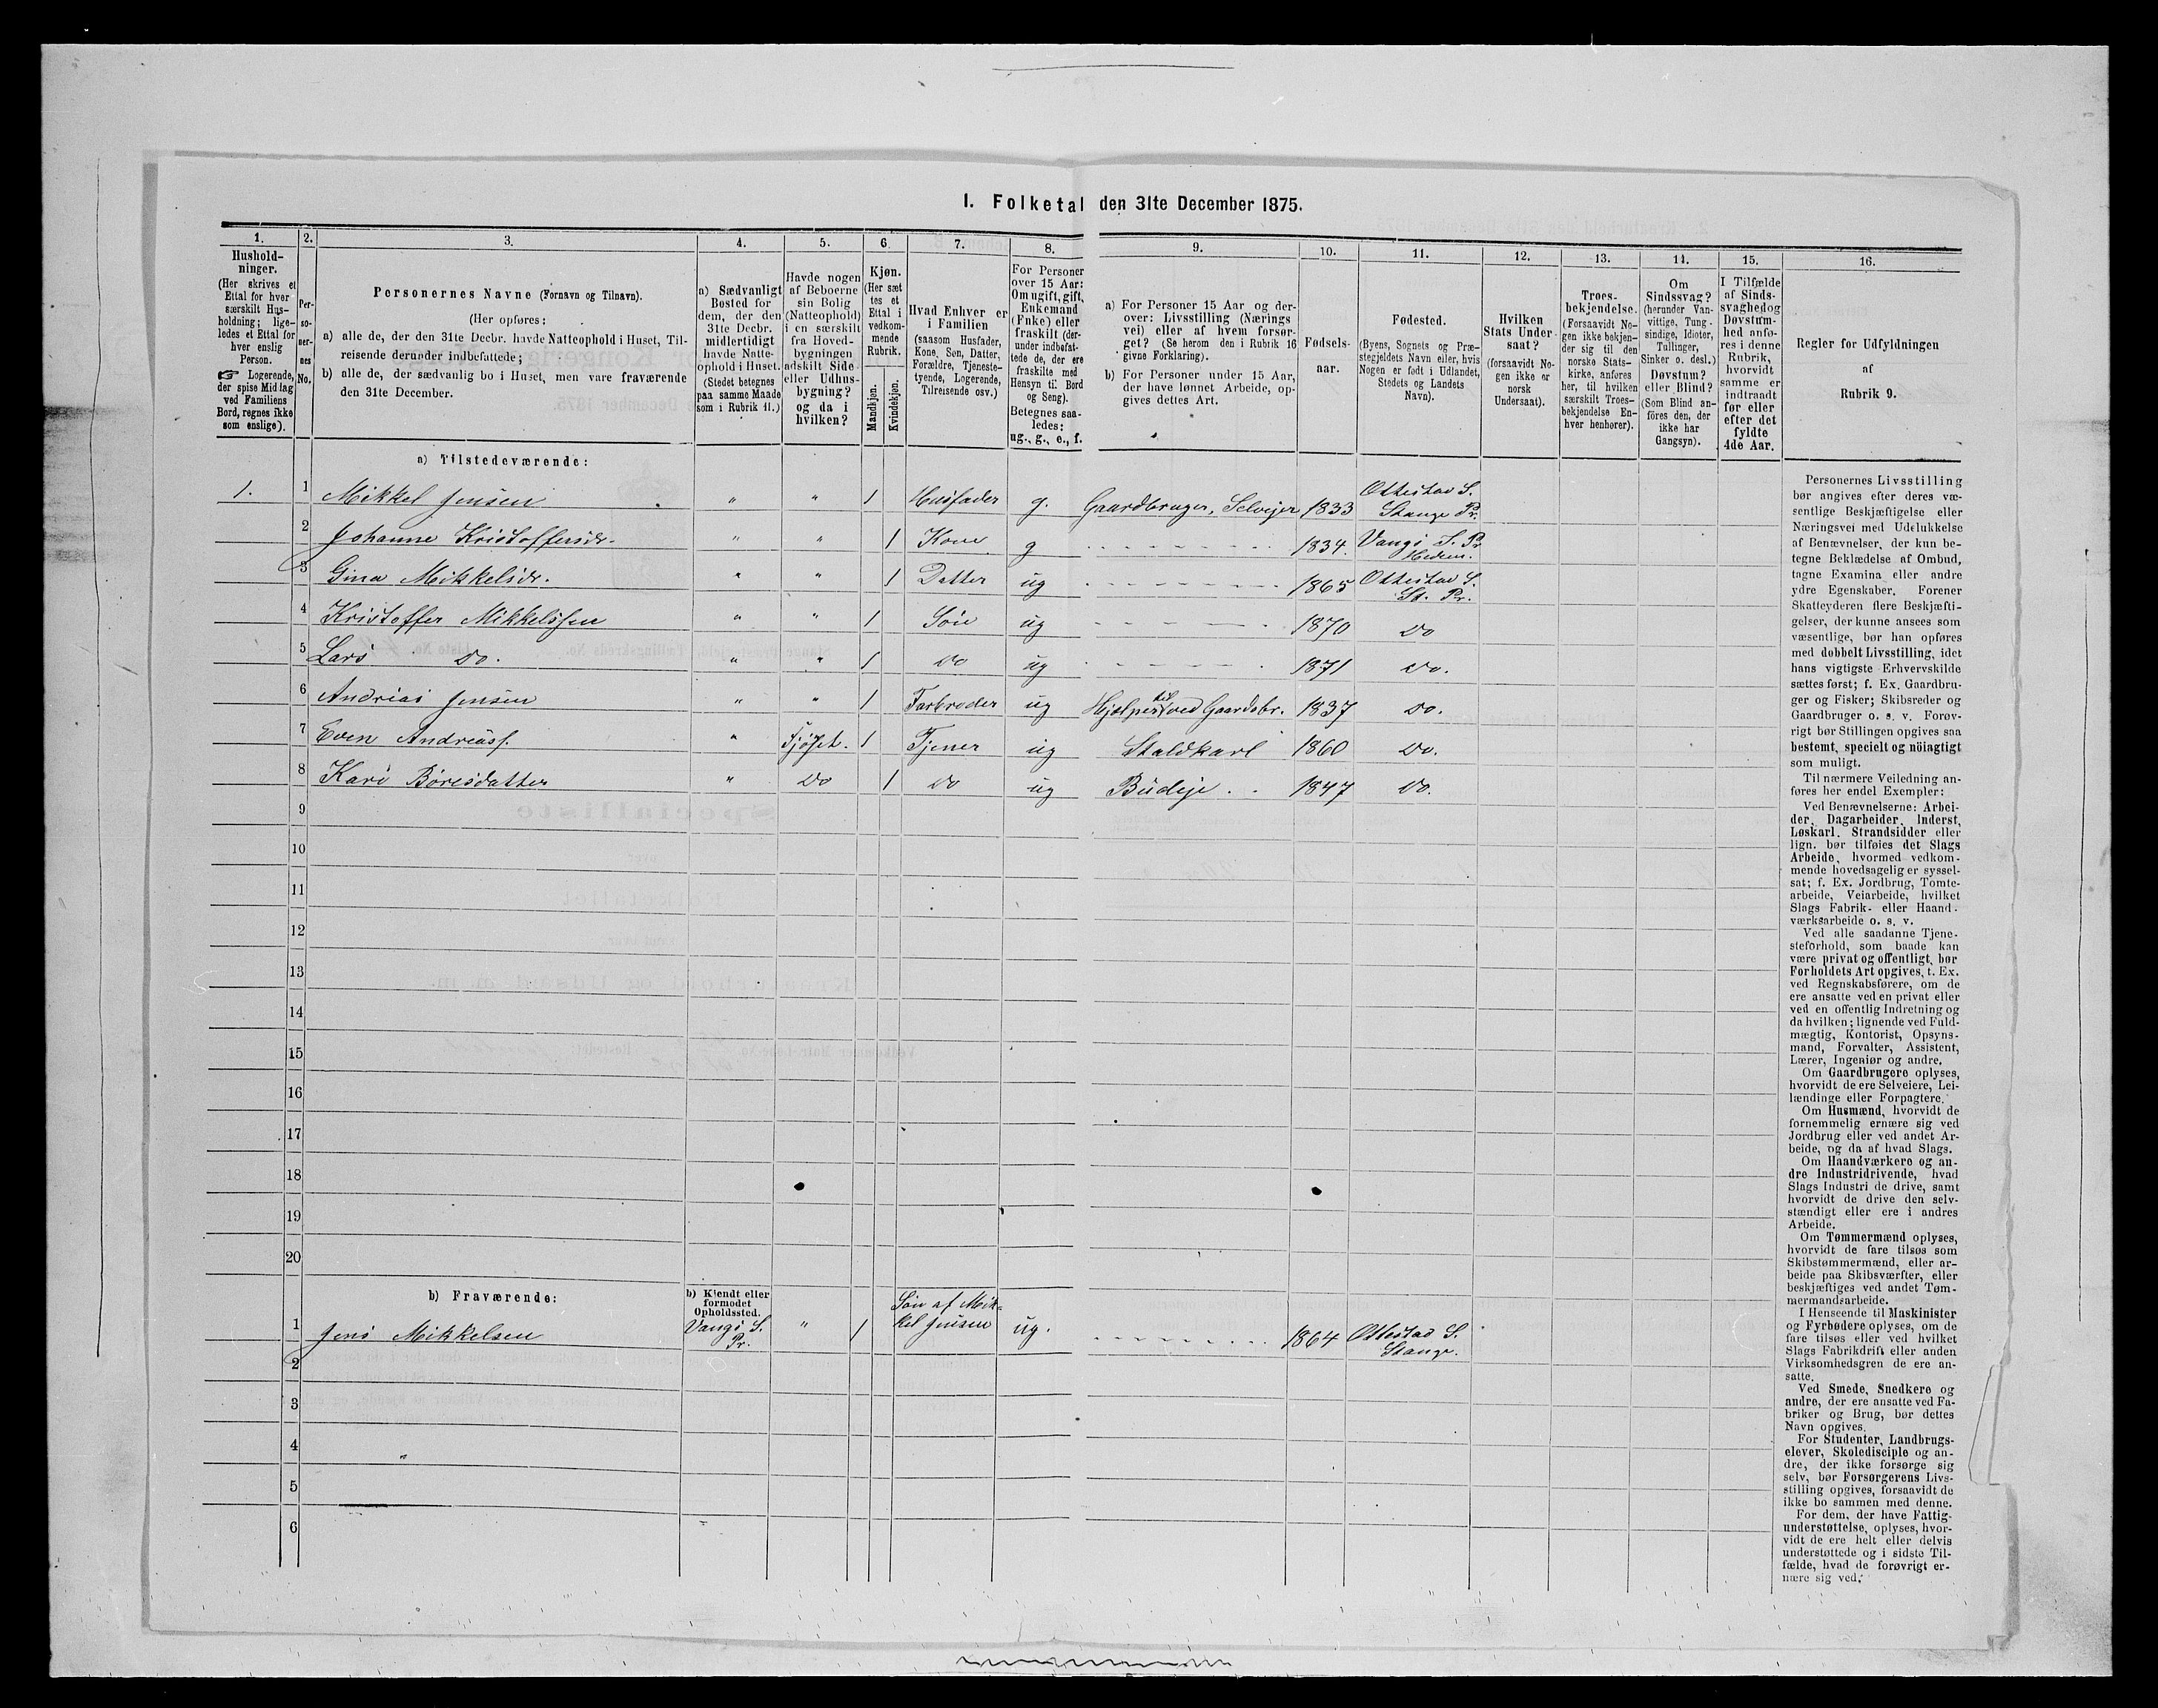 I. Folketal den 31te December 1875.
1.
Hushold-
ninger.
(Her skrives et
Ettal for hver
særskilt Hus-
holdning; lige-
ledes et Ettal for
hver enslig
Person.
☞ Logerende,
der spise Middag
ved Familiens
Bord, regnes ikke
som enslige).
2.
Per-
so-
ner-
nes
No.
3.
Personernes Navne (Fornavn og Tilnavn).
(Her opføres:
a) alle de, der den 31te Decbr. havde Natteophold i Huset, Til-
reisende derunder indbefattede;
b) alle de, der sædvanlig bo i Huset, men vare fraværende
den 31te December.
4.
a) Sædvanligt
Bosted for
dem, der den
31te Decbr.
midlertidigt
havde Natte-
ophold i Huset.
(Stedet betegnes
paa samme Maade
som i Rubrik 11.)
5.
Havde nogen
af Beboerne
sin Bolig
(Natteophold)
i en særskilt
fra Hoved-
bygningen
adskilt Side-
eller Udhus-
bygning?
og da i
hvilken?
6.
Kjøn.
(Her sæt-
tes et
Ettal i
vedkom-
mende
Rubrik.
Mandkjøn.
Kvindekjøn.
7.
Hvad Enhver er
i Familien
(saasom Husfader,
Kone, Søn, Datter,
Forældre, Tjeneste-
tyende, Logerende,
Tilreisende osv.)
8.
For Personer
over 15 Aar:
Om ugift, gift,
Enkemand
(Enke) eller
fraskilt (der-
under indbefat-
tede de, der ere
fraskilte med
Hensyn til Bord
og Seng).
Betegnes saa-
ledes:
ug., g., e., f.
9.
a) For Personer 15 Aar og der-
over: Livsstilling (Nærings-
vei) eller af hvem forsør-
get? (Se herom den i Rubrik 16
givne Forklaring).
b) For Personer under 15 Aar,
der have lønnet Arbeide, op-
gives dettes Art.
10.
Fødsels-
aar.
11.
Fødested.
(Byens, Sognets og Præ-
stegjeldets Navn eller, hvis
Nogen er født i Udlandet,
Stedets og Landets
Navn).
12.
Hvilken
Stats Under-
saat?
(forsaavidt No-
gen ikke er
norsk
Undersaat).
13.
Troes-
bekjendelse.
(Forsaavidt No-
gen ikke bekjen-
der sig til den
norske Stats-
kirke, anføres
her, til hvilken
særskilt Troes-
bekjendelse En-
hver henhører).
14.
Om
Sindssvag?
(herunder Van-
vittige, Tung-
sindige, Idioter,
Tullinger,
Sinker o. desl.)
Døvstum?
eller Blind?
(Som Blind an-
føres den, der
ikke har
Gangsyn).
15.
I Tilfælde
af Sinds-
svaghed og
Døvstum-
hed anfø-
res i denne
Rubrik,
hvorvidt
samme er
indtraadt
før eller
efter det
fyldte
4de Aar.
16.
Regler for Udfyldningen
af
Rubrik 9.
a) Tilstedeværende:
1. 1 Mikkel Jensen " " 1 Husfader g. Gaardbruger, Selveier 1833 Ottestad S.
Stange Pr.
2 Johanne Kristoffersdr. " " 1 Kone g 1834. Vangs S. Pr
Hedem.
3 Gina Mikkelsdr. " " 1 Datter ug 1865 Ottestad S.
St. Pr.
4 Kristoffer Mikkelssen " " 1 Søn ug 1870 do
5 Lars do. " " 1 do ug 1871 do.
6 Andrias Jensen " " 1 Farbroder ug Hjælper til ved Gaardsbr. 1837 do.
7 Even Andreass. " Fjøset. 1 Tjener ug Staldkarl 1860 do.
8 Kari Børesdatter " do 1 do ug Budeje 1847 do.
9
10
11
12
13
14
15
16
17
18
19
20
b) Fraværende:
b) Kjendt eller
formodet
Opholdssted.
1 Jens Mikkelsen Vangs S.
Pr. " 1 Søn af Mik-
kel Jensen ug. 1864 Ottestad S.
Stange.
2
3
4
5
6
Personernes Livsstilling
bør angives efter deres væ-
sentlige Beskjæftigelse eller
Næringsvei med Udelukkelse
af Benævnelser, der kun be-
tegne Beklædelse af Ombud,
tagne Examina eller andre
ydre Egenskaber. Forener
Skatteyderen flere Beskjæfti-
gelser, der kunne ansees som
væsentlige, bør han opføres
med dobbelt Livsstilling, idet
hans vigtigste Erhvervskilde
sættes først; f. Ex. Gaardbru-
ger og Fisker; Skibsreder og
Gaardbruger o. s. v. Forøv-
rigt bør Stillingen opgives saa
bestemt, specielt og nöiagtigt
som muligt.
Til nærmere Veiledning an-
føres her endel Exempler:
Ved Benævnelserne: Arbei-
der, Dagarbeider, Inderst,
Løskarl, Strandsidder eller
lign. bør tilføies det Slags
Arbeide, hvormed vedkom-
mende hovedsagelig er syssel-
sat; f. Ex. Jordbrug, Tomte-
arbeide, Veiarbeide, hvilket
Slags Fabrik- eller Haand-
værksarbeide o. s. v.
Ved alle saadanne Tjene-
steforhold, som baade kan
være privat og offentligt, bør
Forholdets Art opgives, f. Ex.
ved Regnskabsførere, om de
ere ansatte ved en privat eller
ved en offentlig Indretning og
da hvilken; lignende ved Fuld-
mægtig, Kontorist, Opsyns-
mand, Forvalter, Assistent,
Lærer, Ingeniør og andre.
Om Gaardbrugere oplyses,
hvorvidt de ere Selveiere, Lei-
lændinge eller Forpagtere.
Om Husmænd, hvorvidt de
fornemmelig ernære sig ved
Jordbrug eller ved andet Ar-
beide, og da af hvad Slags.
Om Haandværkere og an-
dre Industridrivende, hvad
Slags Industri de drive, samt
hvorvidt de drive den selv-
stændigt eller ere i andres
Arbeide.
Om Tømmermænd oplyses,
hvorvidt de fare tilsøs som
Skibstømmermænd, eller ar-
beide paa Skibsværfter, eller
beskjæftiges ved andet Tøm-
mermandsarbeide.
I Henseende til Maskinister
og Fyrbødere oplyses, om de
fare tilsøs eller ved hvilket
Slags Fabrikdrift eller anden
Virksomhedsgren de ere an-
satte.
Ved Smede, Snedkere og
andre, der ere ansatte ved Fa-
briker og Brug, bør dettes
Navn opgives.
For Studenter, Landbrugs-
elever, Skoledisciple og an-
dre, der ikke forsørge sig
selv, bør Forsørgerens Livs-
stilling opgives, forsaavidt de
ikke bo sammen med denne.
For dem, der have Fattig-
understøttelse, oplyses, hvor-
vidt de ere helt eller delvis
understøttede og i sidste Til-
fælde, hvad de forøvrigt er-
nære sig ved.